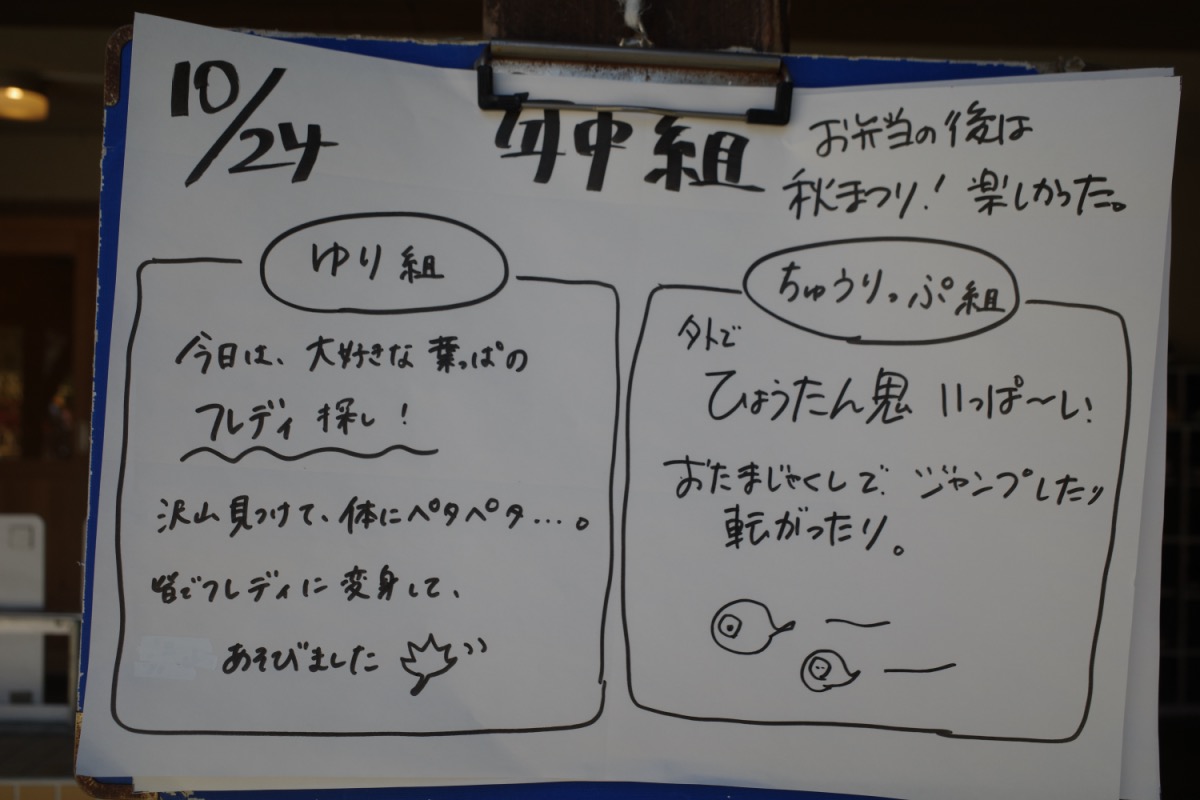 10/24
年中組
お弁当の後は
秋まつり！楽しかった。
ゆり組
今日は、大好きな葉っぱの
フレディ探し！
沢山見つけて、体にペタペタ…。
皆でフレディに変身して、
あそびました
ちゅうりっぷ組
外で
ひょうたん鬼 いっぱ〜い！
おたまじゃくしで ジャンプしたり
転がったり。